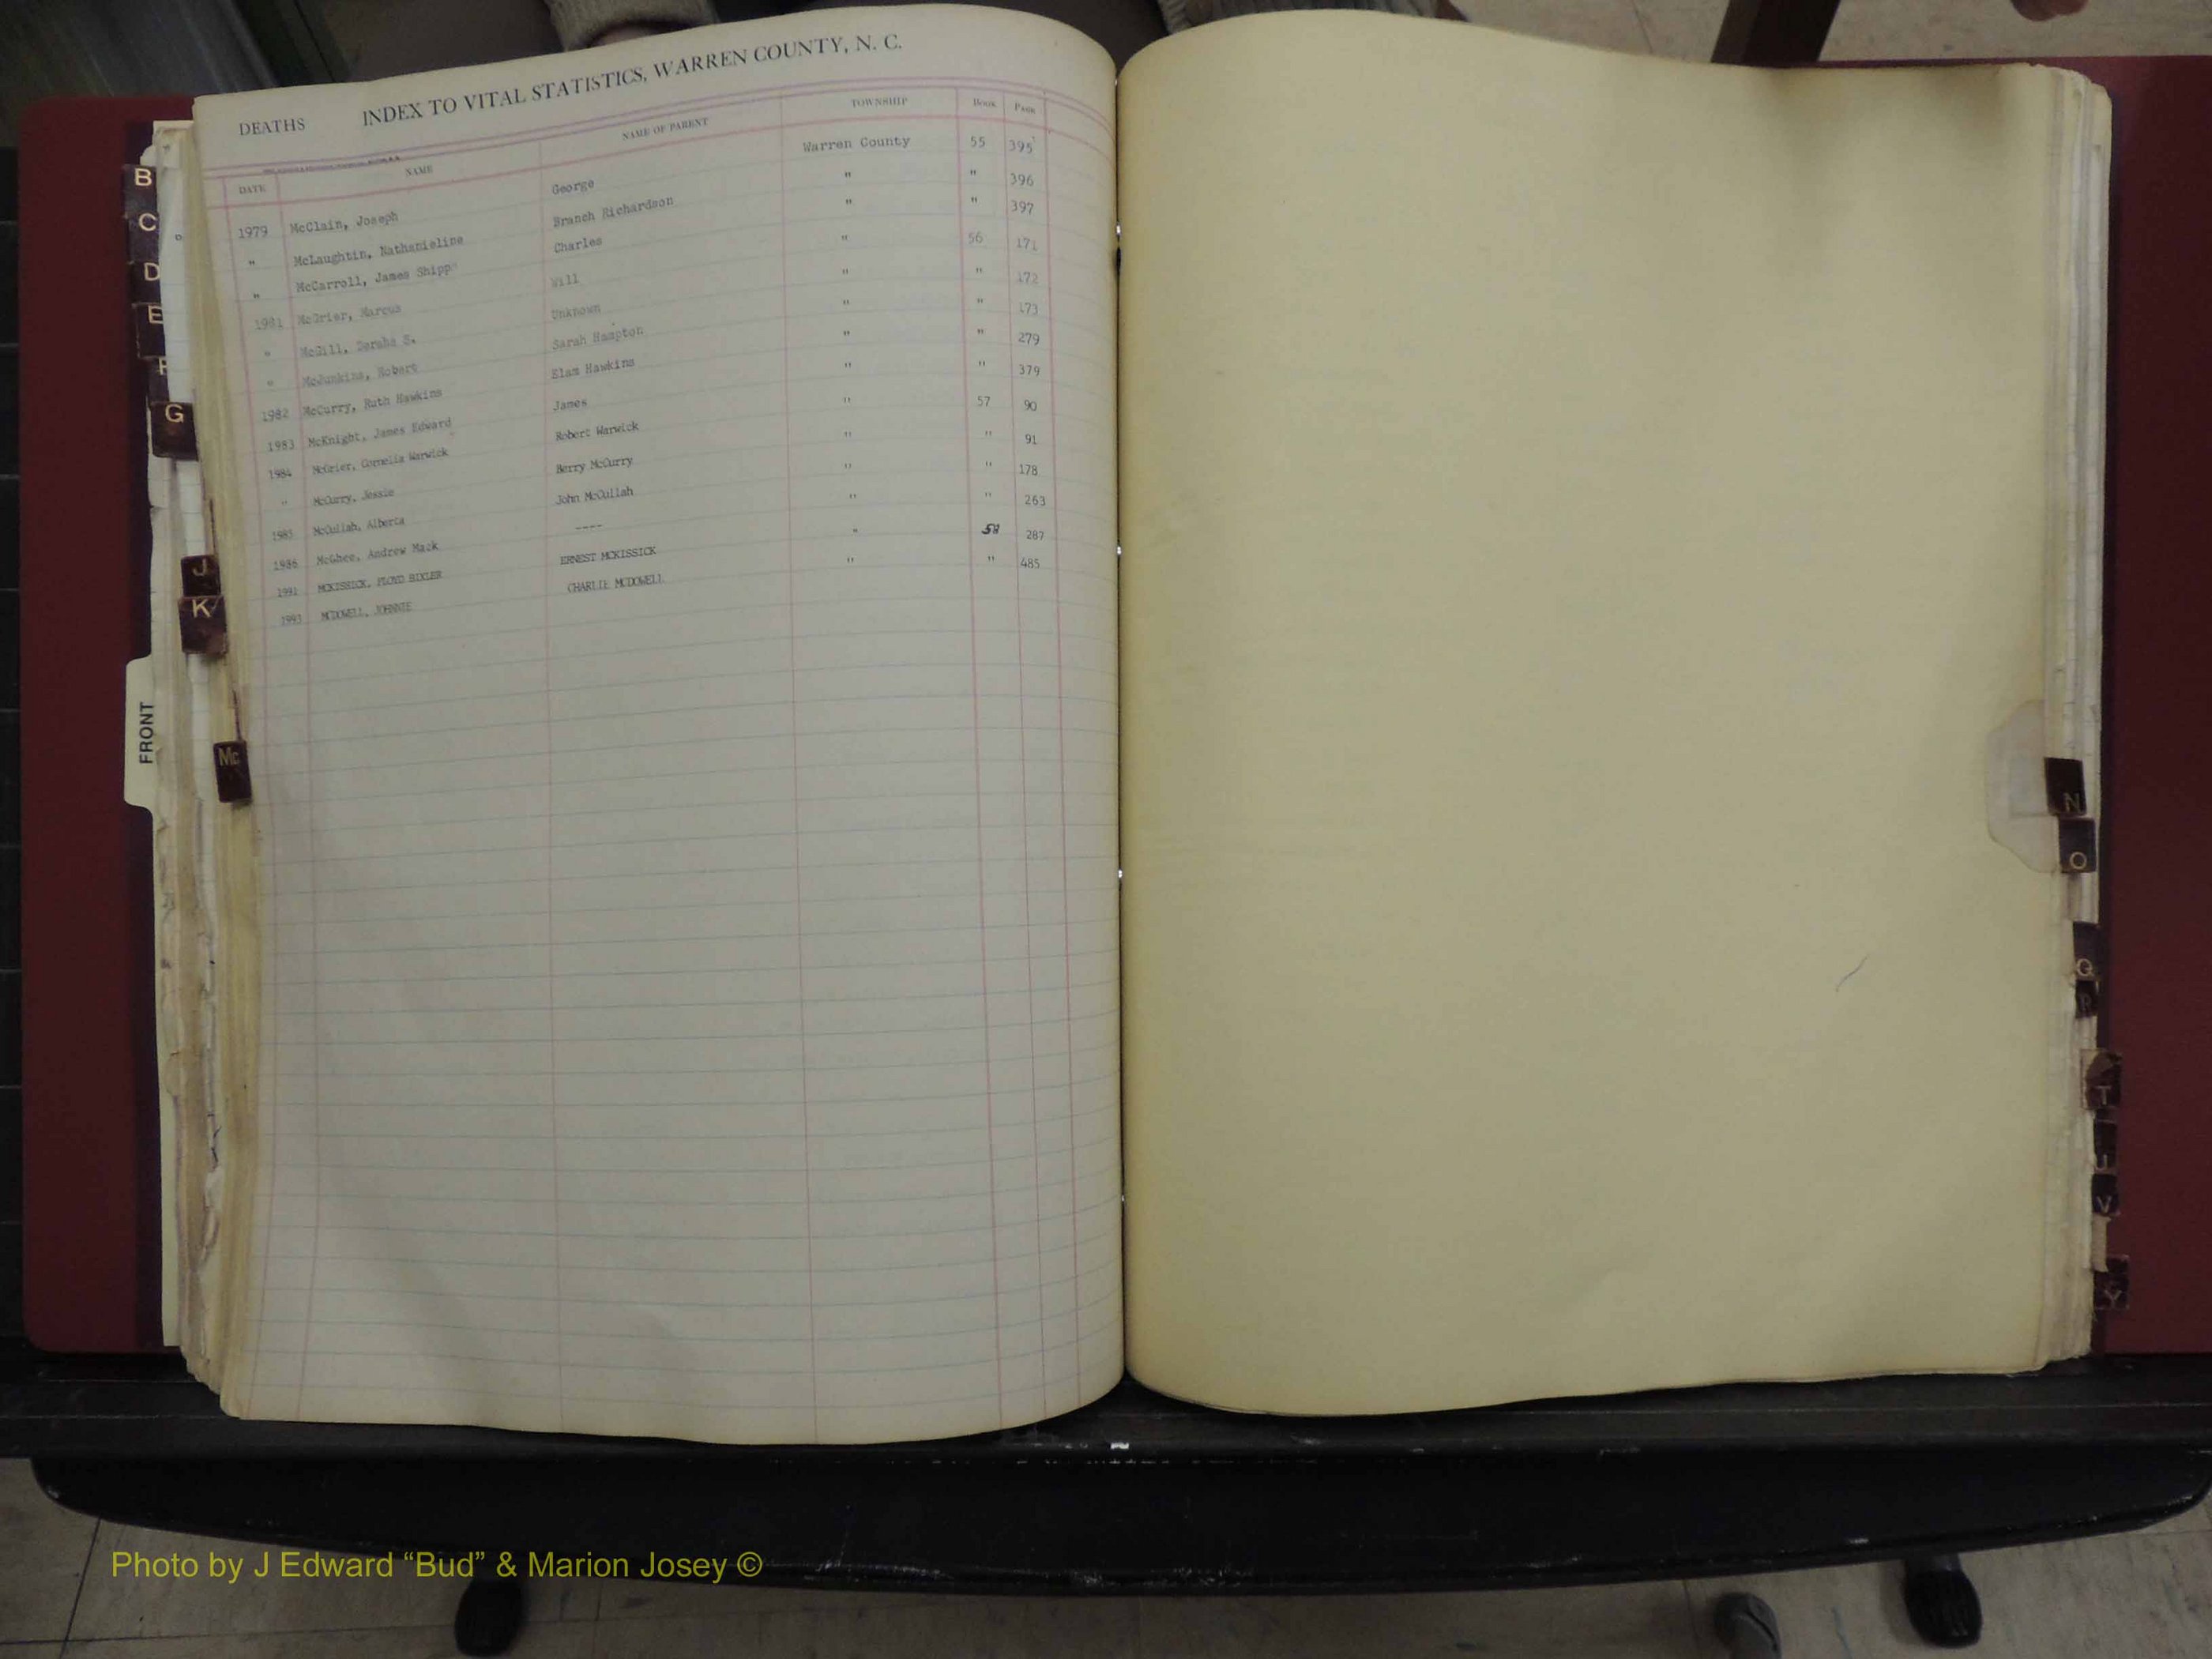 DEATHS INDEX TO VITAL STATISTICS, WARREN COUNTY, N. C.
DATE NAME NAME OF PARENT TOWNSHIP BOOK PAGE
1979 McClain, Joseph George Warren County 55 395
" McLaughtin, Nathanieline Branch Richardson " " 396
" McCarroll, James Shipp Charles " " 397
1981 McGrier, Marcus Will " 56 171
" McGill, S. Unknown " " 172
" McJunkins, Robert Sarah Hampton " " 173
1982 McCurry, Ruth Hawkins Elam Hawkins " " 279
1983 McKnight, James Edward James " " 379
1984 McGrier, Cornelia Warwick Robert Warwick " 57 90
" McCurry, Jessie Berry McCurry " " 91
1985 McCullah, Alberta John McCullah " " 178
1986 McGhee, Andrew Mack ---- " " 263
1991 MCKISSICK, FLOYD BIXLER ERNEST MCKISSICK " 58 287
1993 MCDOWELL, JOHNNIE CHARLIE MCDOWELL " " 485
B
C
D
E
F
G
J
K
FRONT
Mc
N
O
Q
R
T
U
V
Y
Photo by J Edward “Bud” & Marion Josey ©